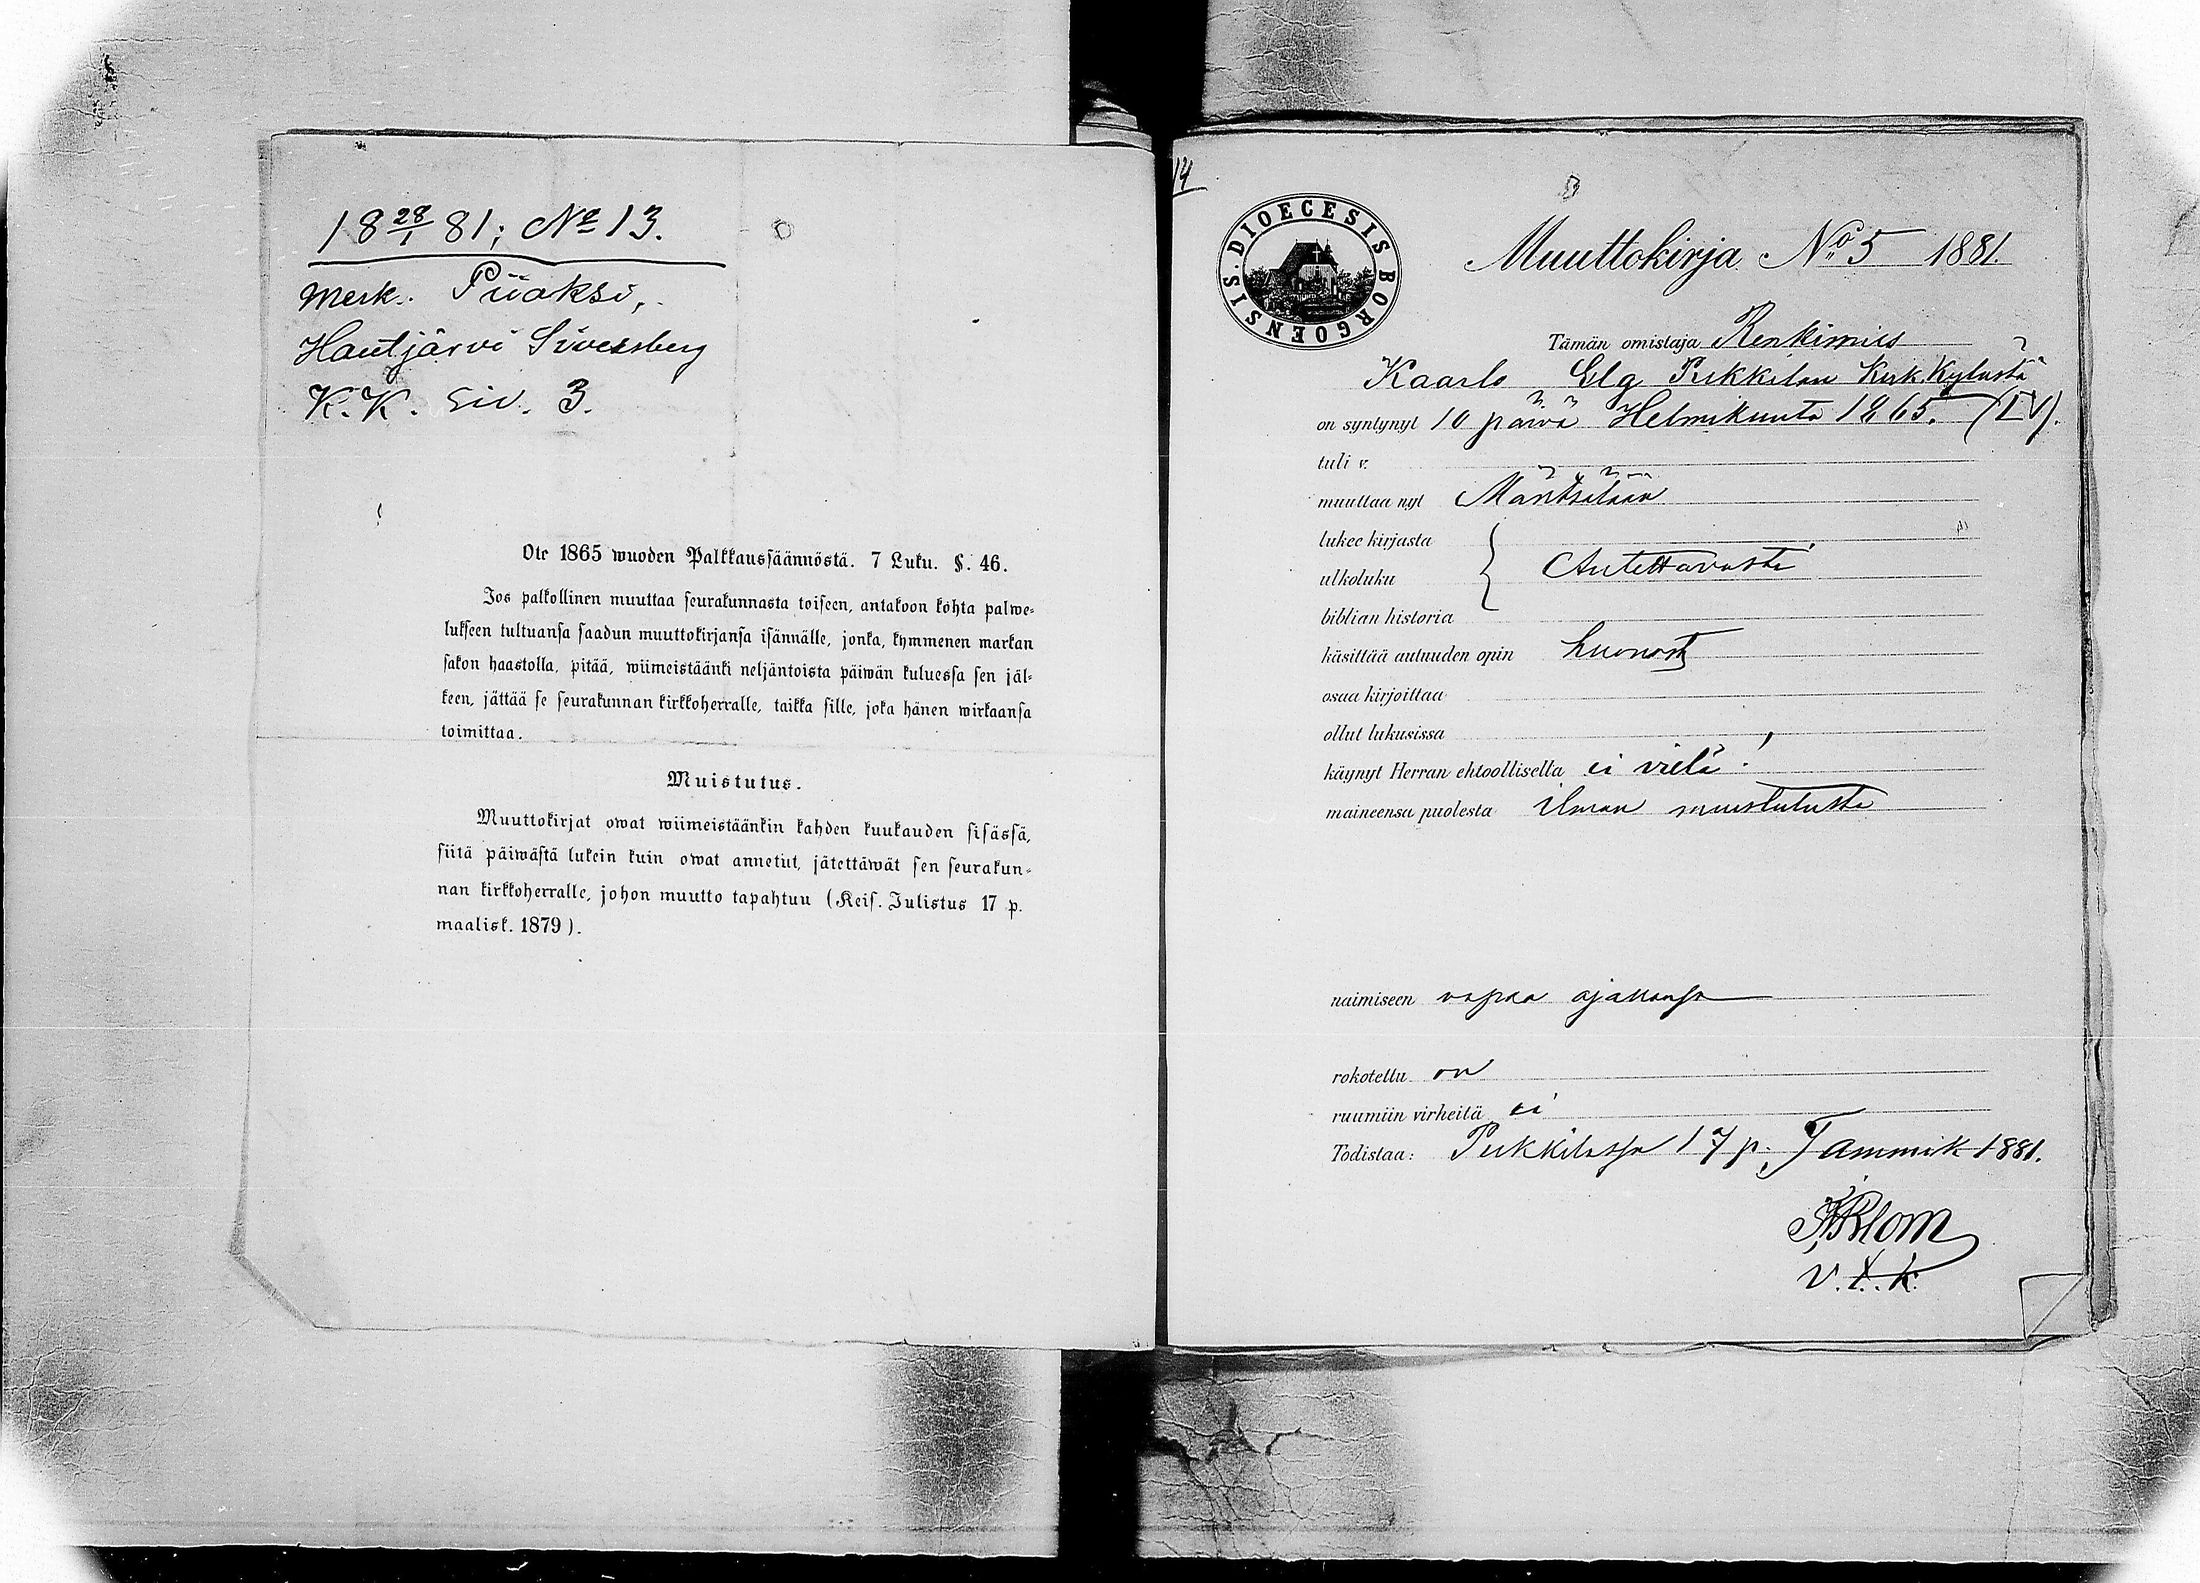 18 28/1 81; No 13.
Merk. Piiaksi,
Hautjärvi Siversberg
K.K. siv. 3.
Ote 1865 wuoden Palkkaussäännöstä. 7 Luku. §. 46.
Jos palkollinen muuttaa seurakunnasta toiseen, antakoon kohta palwe-
lukseen tultuansa saadun muuttokirjansa isännälle, jonka, kymmenen markan
sakon haastolla, pitää, wiimeistäänki neljäntoista päiwän kuluessa sen jäl-
keen, jättää se seurakunnan kirkkoherralle, taikka sille, joka hänen wirkaansa
toimittaa.
Muistutus.
Muuttokirjat owat wiimeistäänkin kahden kuukauden sisässä,
siitä päiwästä lukein kuin owat annetut, jätettäwät sen seurakun-
nan kirkkoherralle, johon muutto tapahtuu (Keis. Julistus 17 p.
maalisk. 1879).
14
DIOECESIS BORGOENSIS.
Muuttokirja No 5 1881.
Tämän omistaja Renkimies
Kaarlo Elg Pukkilan Kirk. Kylästä
on syntynyt 10 päivä Helmikuuta 1865. (LV).
tuli v.
muuttaa nyt Mäntsälään
lukee kirjasta
ulkoluku Autettavasti
biblian historia
käsittää autuuden opin huonosti
osaa kirjoittaa
ollut lukusissa
käynyt Herran ehtoollisella ei vielä!
maineensa puolesta ilman muistutusta
naimiseen vapaa ajallansa
rokotettu on
ruumiin virheitä ei
Todistaa: Pukkilassa 17 p. Tammik 1881.
Blom
v. t. k.